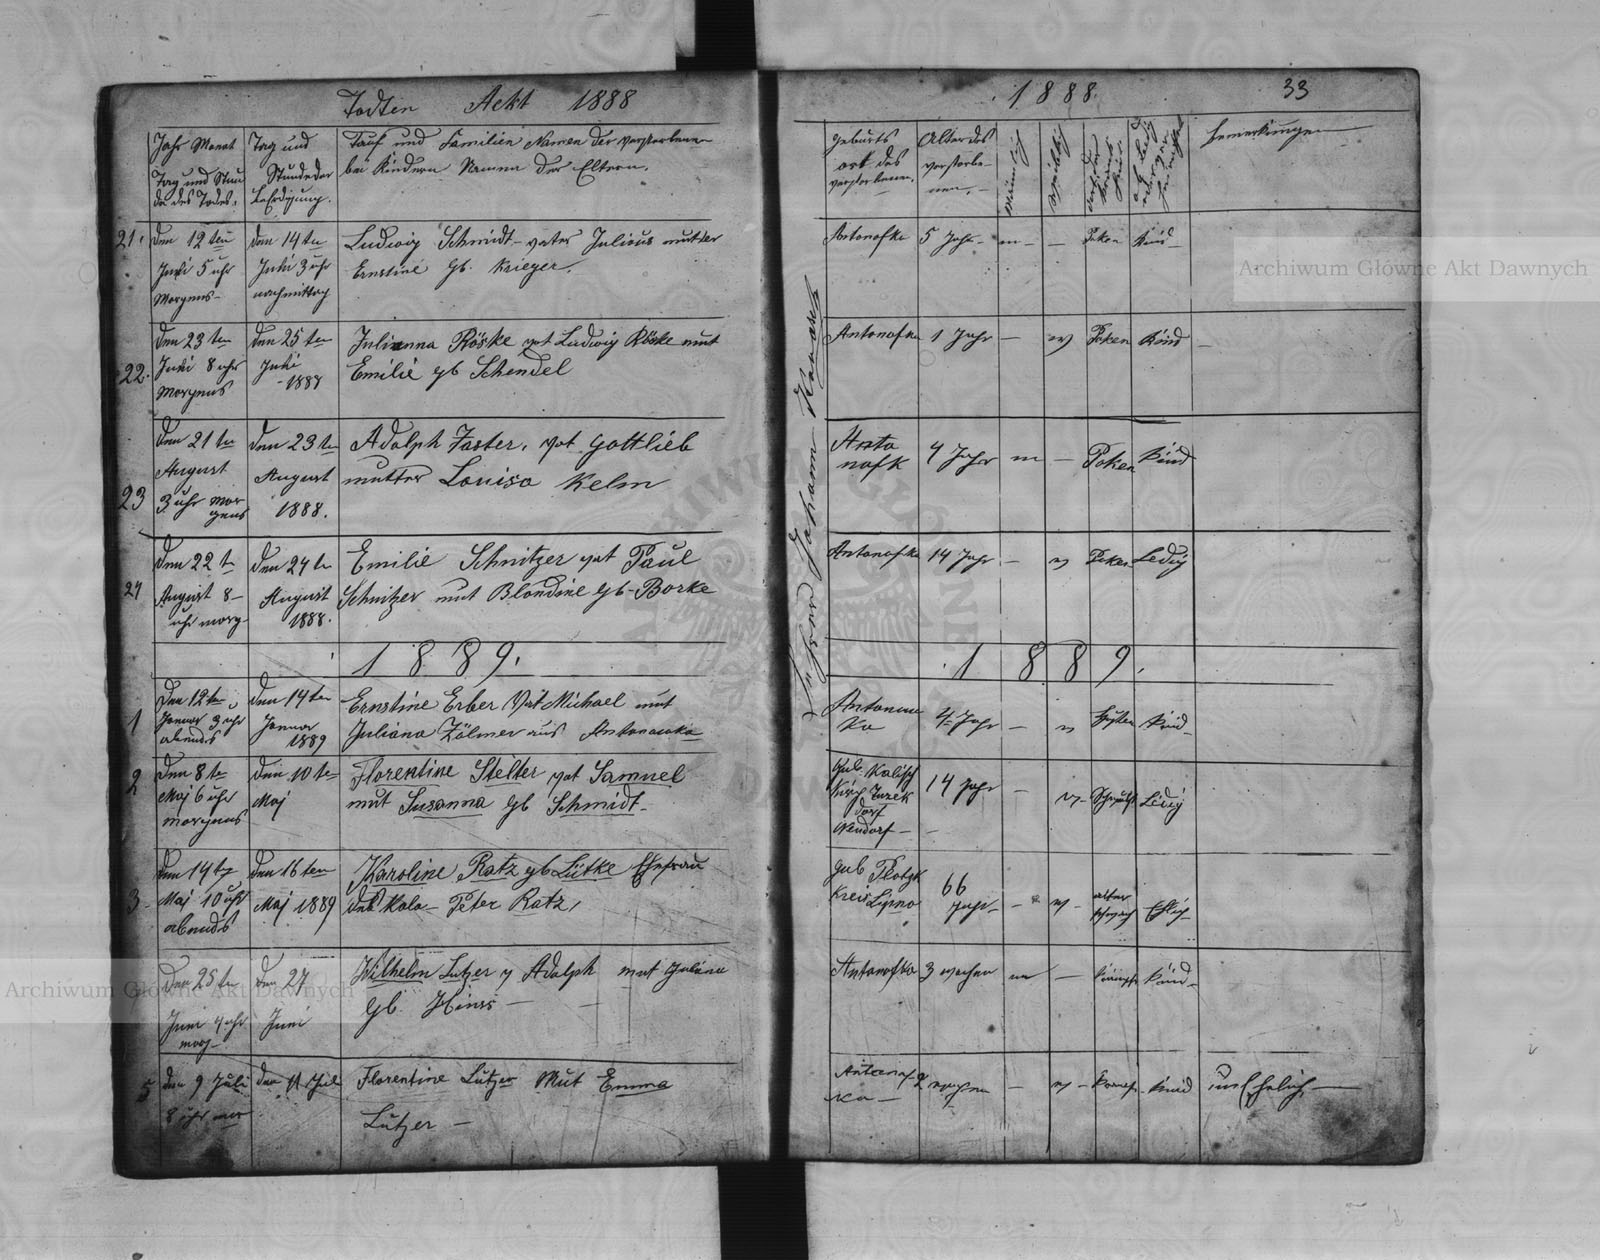 Todten Ackt 1888
Jahr Monat
Tag und Stun
de des Todes.
Tag und
Stunde der
Beerdigung.
Tauf und Familien Namen der verstorbenen
bei Kindern Namen der Eltern.
21.
den 12 ten
Juli 5 uhr
Morgens -
den 14 ten
Juli 3 uhr
nachmittag
Ludwig Schmidt - vater Julius mutter
Ernstine gb. Krieger.
22.
den 23 ten
Juli 8 uhr
Morgens
den 25 ten
Juli
- 1888
Julianna Röske vat Ludwig Röske mut
Emilie gb Schendel
23
den 21 ten
August
3 uhr mor
gens
den 23 ten
August
1888.
Adolph Faster, vat gottlieb
mutter Louisa Kelm
24
den 22 t
August 8 -
uhr morg-
den 24 te
August
1888.
Emilie Schnitzer vat Paul
Schnitzer mut Blondine gb - Borke
1889.
1
den 12 ten
Januar 3 uhr
abends
den 14 ten
Januar
1889
Ernstine Erber Vat Michael mut
Juliana Zölmer aus Antonowka
2
den 8 te
Maj 6 uhr
morgens
den 10 te
Maj
Florentine Stelter vat Samuel
mut Susanna gb Schmidt -
3
den 14 t
Maj 10 uhr
abends
den 16 ten
Maj 1889
Karoline Ratz gb Lütke Ehefrau
des Kolo - Peter Ratz,
den 25 te
Juni 4 uhr
morg -
den 27
Juni
Wilhelm Lutzer v Adolph mut Juliana
gb. Hinz -
5
den 9 Juli
8 uhr mor
den 11 Juli
Florentine Lutzer Mut Emma
Lutzer -
1888.
33
geburts
ort des
verstorbenen.
Alter des
verstorbe-
nen. -
Männlich
Weiblich
Bemerkungen
Johann
Antonofka 5 Jahr - m - - Poken Kind -
Antonofka 1 Jahr - w Poken Kind -
Anto
nofk 4 Jahr m - Poken Kind
Antonofka 14 Jahr - w Poken Ledig
1889.
Antonow
ka 4 Jahr - w Husten Kind -
gub Kalisch
Kirch Turek
dorf
Neudorf -
14 Jahr - w - Ledig
gub Plotzk
Kreis Lipno
66
Jahr - - w - alter
schwach Ehlich -
Antonofka 3 wochen m - Krämpfe Kind -
Antonof
ka -
2 wochen - w - Krampf Kind unEhelich -
Archiwum Główne Akt Dawnych
Archiwum Główne Akt Dawnych